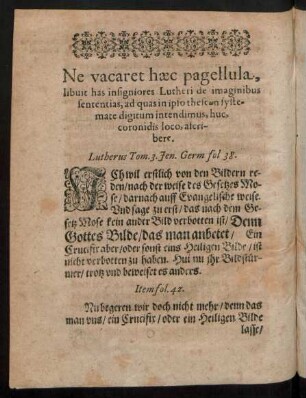 Ne vacaret hæc pagellula,
libuit has insigniores Lutheri de imaginibus
sententias, ad quas in ipso thesium syste-
mate digitum intendimus, huc,
coronidis loco, ascri-
bere.
Lutherus Tom. 3. Jen. Germ fol 38.
ICh wil erstlich von den Bildern re-
den/nach der weise des Gesetzes Mo-
se/darnach auff Evangelische weise.
Und sage zu erst/das nach dem Ge-
setz Mose kein ander Bild verbotten ist/Denn
Gottes Bilde/das man anbetet/ Ein
Crucifix aber/oder sonst eins Heiligen Bilde/ist
nicht verbotten zu haben. Hui nu ihr Bildstür-
mer/trotz und beweiset es anders.
Item fol. 42.
Nu begeren wir doch nicht mehr/denn das
man uns/ein Crucifix/oder ein Heiligen Bilde
lasse/